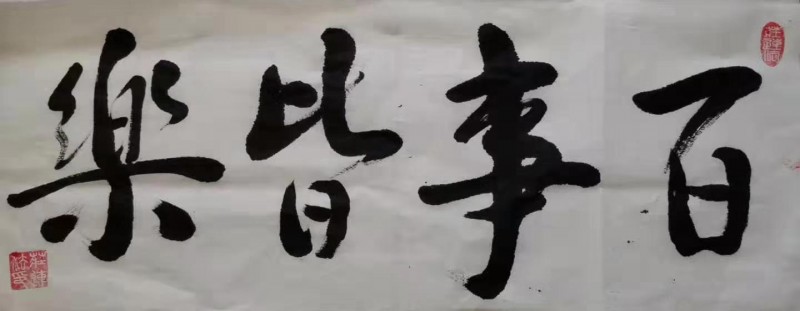 百事皆樂